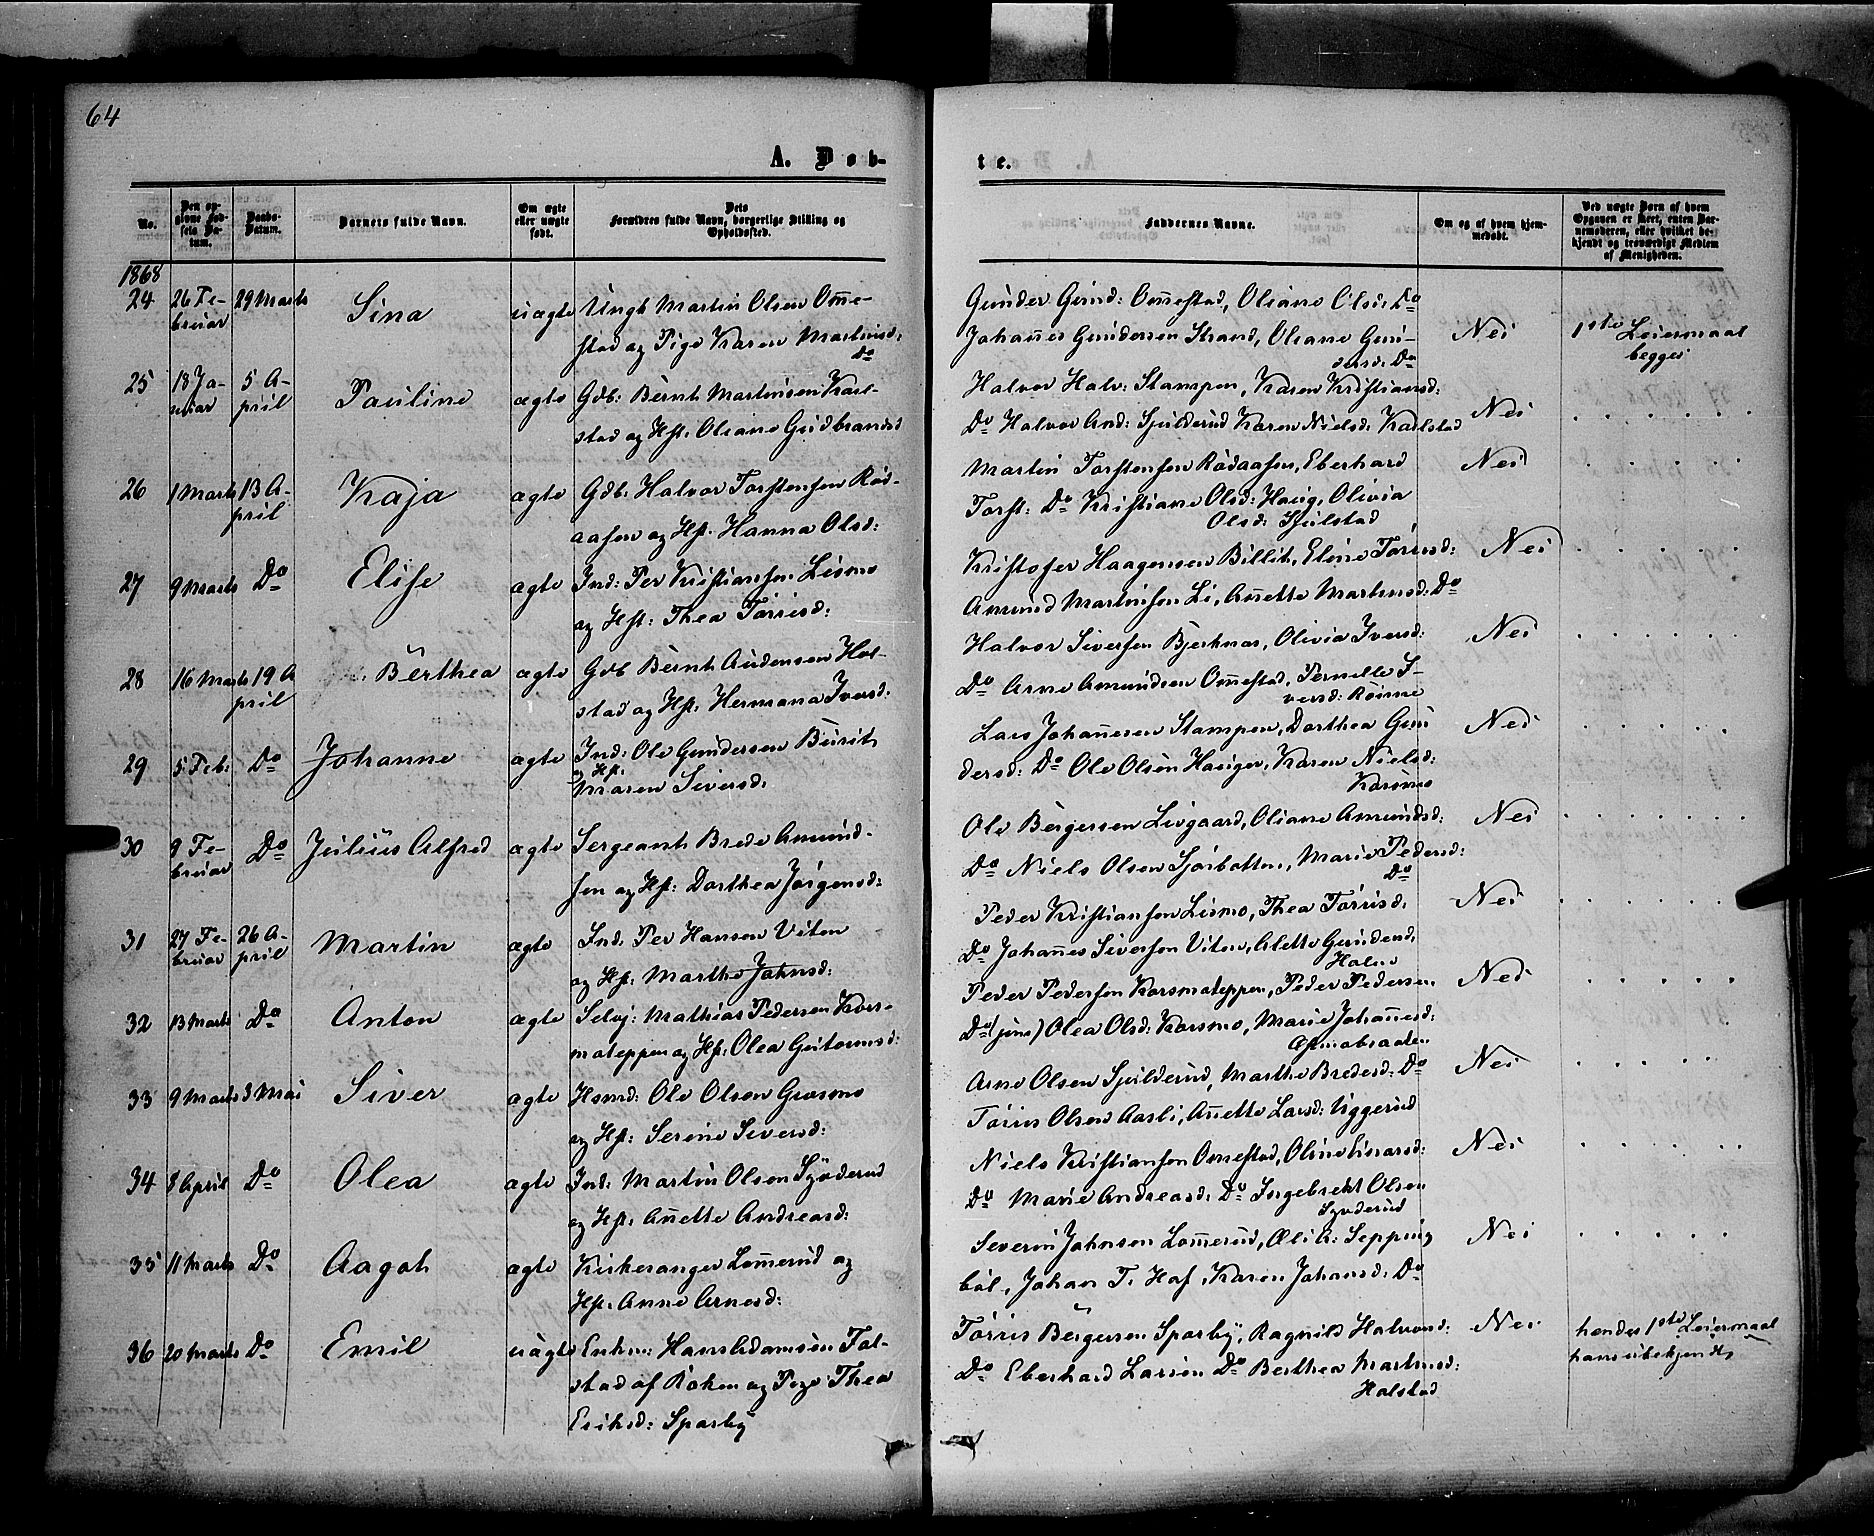 64
A. Døb-
te.
No.
Den op-
givne Fød-
sels Da-
tum.
Daabs-
Datum.
Barnets fulde Navn.
Om ægte
eller uægte
født.
Dets
Forældres fulde Navn, borgerlige Stilling og
Opholdssted.
Faddernes Navne.
Om og af hvem hjem-
medøbt.
Ved uægte Børn af hvem
Opgaven er skeet, enten Bar-
nemoderen, eller hvilket be-
kjendt og troværdigt Medlem
af Menigheden.
1868
24 26 Fe-
bruar 29 Marts Sina uægte Ungk Martin Olsen Ome-
stad og Pige Karen Martinsd:
Do
Gunder Gund: Omestad, Oliane Olsd: Do
Johanes Gundersen Strand, Oliane Gun-
dersd: Do
Nei
1ste Leiermaal
begges
25 18 Ja-
nuar 5 A-
pril Pauline ægte Gdb: Bernt Martinsen Karl-
stad og Hst: Oliane Gudbrandsd
Halvor Halv: Stampen, Karen Kristiansd:
Do Halvor And: Sjulderud Karen Nielsd: Karlstad
Nei
26 1 Marts 13 A-
pril Kaja ægte Gdb: Halvor Torstensen Rød-
aasen og Hst. Hanna Olsd:
Martin Torstensen Rødaasen, Eberhard
Torst: Do Kristiane Olsd: Haug, Olivia
Olsd: Sjulstad
Nei
27 9 Marts Do Elise ægte Ind: Per Kristiansen Lismo
og Hst: Thea Torrisd:
Kristofer Haagensen Billit, Eline Torrisd:
Amund Martinsen Li, Anette Martinsd: Do
Nei
28 16 Marts 19 A
pril Berthea ægte Gdb Bernt Audensen Hol-
stad og Hst: Hermana Iversd:
Halvor Siversen Bjerknes, Olivia Iversd:
Do Arne Amundsen Omestad, Pernelle I-
versd:
Nei
29 5 Feb: Do Johanne ægte Ind: Ole Gundersen Burit
og Hst:
Karen Siversd:
Lars Johanesen Stampen, Dorthea Gun
dersd: Do Ole Olsen Hauger, Karen Nielsd:
Karsmo
Nei
30 9 Fe-
bruar Do Julius Alfred ægte Sergeant Brede Amund-
sen og Hst: Dorthea Jørgensd:
Ole Bergersen Livgaard, Oliane Amundsd:
Do Niels Olsen Sjøbotten, Marie Pedersd:
Do
Nei
31 27 Fe-
bruar 26 A-
pril Martin ægte Ind: Per Hansen Viten
og Hst: Marthe Johnsd:
Peder Kristiansen Lismo, Thea Torrisd:
Do Johannes Siversen Viten, Alette Gundersd:
Nei
32 13 Marts Do Anton ægte Selvj: Mathias Pedersen Kors-
moteppen og Hst: Olea Gutormsd:
Peder Pedersen Korsmoteppen, Peder Pedersen
Do (jun:) Olea Olsd: Korsmo, Marie Johanesd:
Nei
33 9 Marts 3 Mai Siver ægte Hsmd: Ole Olsen Grasmo
og Hst: Serine Siversd:
Arne Olsen Sjulderud, Marthe Bredesd: Do
Torris Olsen Aasli, Anette Larsd: Uggerud
Nei
34 8 April Do Olea ægte Ind: Martin Olsen Syverud
og Hst: Anette Andreasd:
Niels Kristiansen Omestad, Oline Einarsd:
Do Marie Andreasd: Do Ingebrekt Olsen
Syverud
Nei
35 11 Marts Do Aagot ægte Kirkesanger Lomerud og
Hst: Anne Arnesd:
Severin Johnsen Lomerud, Oli A: Sepping
bøl, Johan T. Hof, Karen Johansd: Do
Nei
36 20 Marts Do Emil uægte Enkm: Hans Adamsen Fol-
stad af Raken og Pige Thea
Eriksd: Sparby
Torris Bergersen Sparby, Ragnild Halvorsd:
Do Eberhard Larsen Do Berthea Martinsd:
Holstad
Nei
hendes 1ste Leiermaal
hans ubekjendt